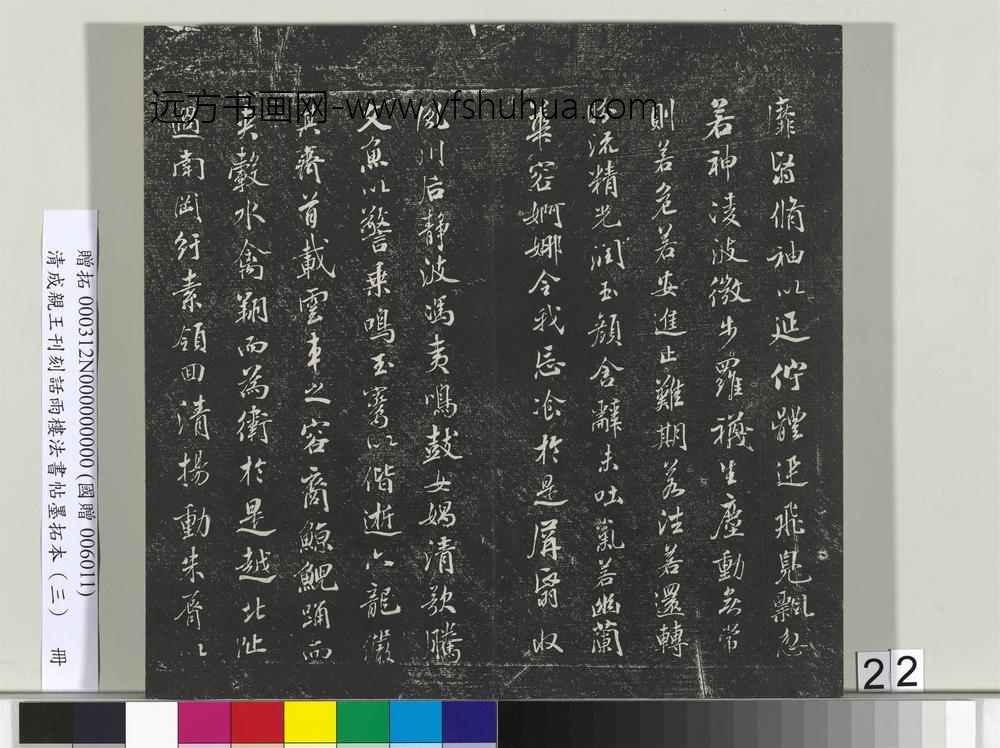 靡翳脩袖以延佇體迅飛鳧飄忽
若神淩波微步羅襪生塵動無常
則若危若安進止難期若往若還轉
眄流精光潤玉顏含辭未吐氣若幽蘭
華容婀娜令我忘飡於是屏翳收
風川后靜波馮夷鳴鼓女媧清歌騰
文魚以警乘鳴玉鸞以偕逝六龍儼
其齊首載雲車之容裔鯨鯢踴而
夾轂水禽翔而為衛於是越北沚
過南岡紆素領迴清揚動朱脣以
远方书画网-www.yfshuhua.com
贈拓 000312N000000000 (國贈 006011)
清成親王刊刻話雨樓法書帖墨拓本 (三) 冊
22